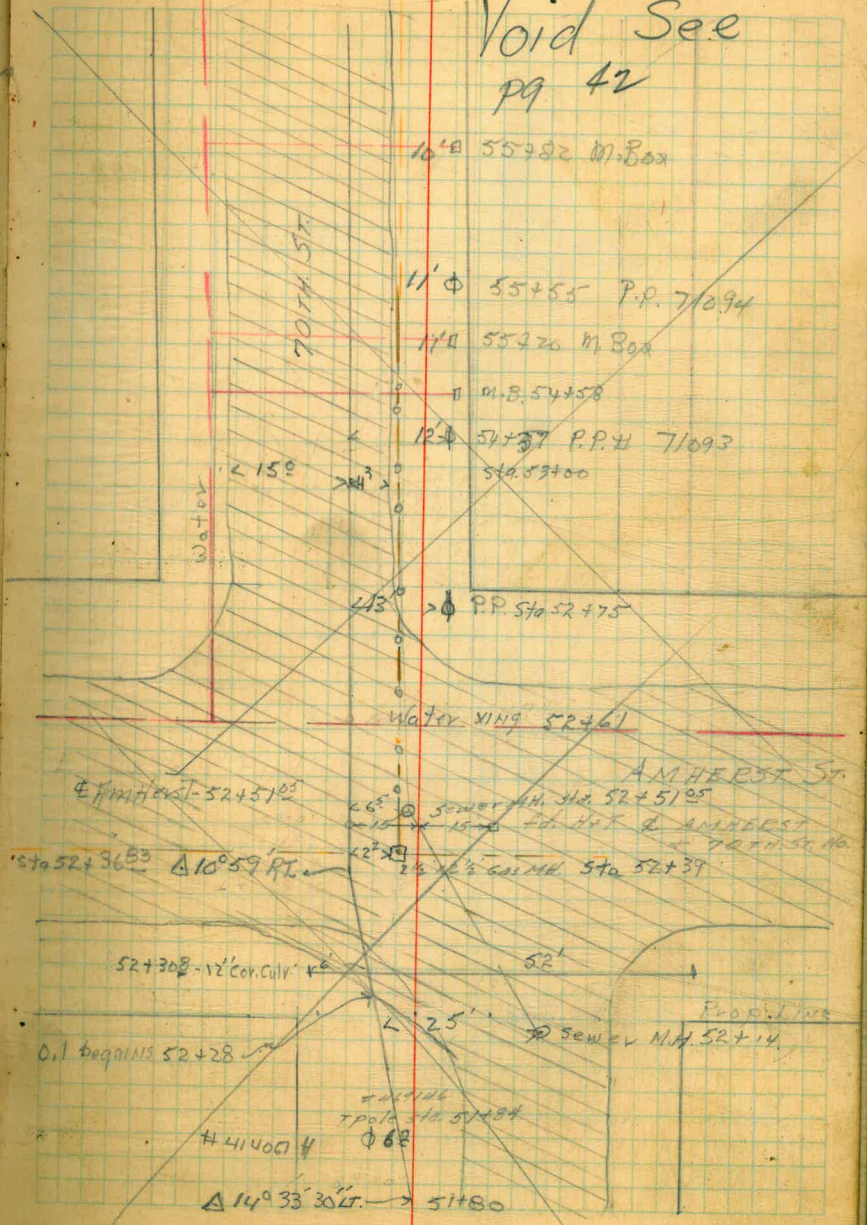 Void See
pg 42
10' 55+82 M.Box
70TH. ST.
11' 55+55 P.P. 71094
11' 55+20 M.Box
M.B. 54+58
12' 54+37 P.P.# 71093
Sta. 53+00
< 15º
Water
<13'
P.P. Sta 52+75
Water XING 52+61
AMHERST ST.
₵ Amherst-52+51⁰⁵
<6⁵ Sewer MH. Sta. 52+51⁰⁵
15 15 Fd. H+T ₵ AMHERST
70TH ST. No.
Sta 52+36⁸³ Δ10°59' RT.
<2² 2½ Gas MH. Sta 52+39
52+30⁸ - 12" Cor. Culv. 6'
52'
< 25'
Prop. Line
Sewer M.H. 52+14
0.1 begains 52+28
T pole sta. 51+84
#414061
6²
Δ 14° 33' 30" LT. 51+80